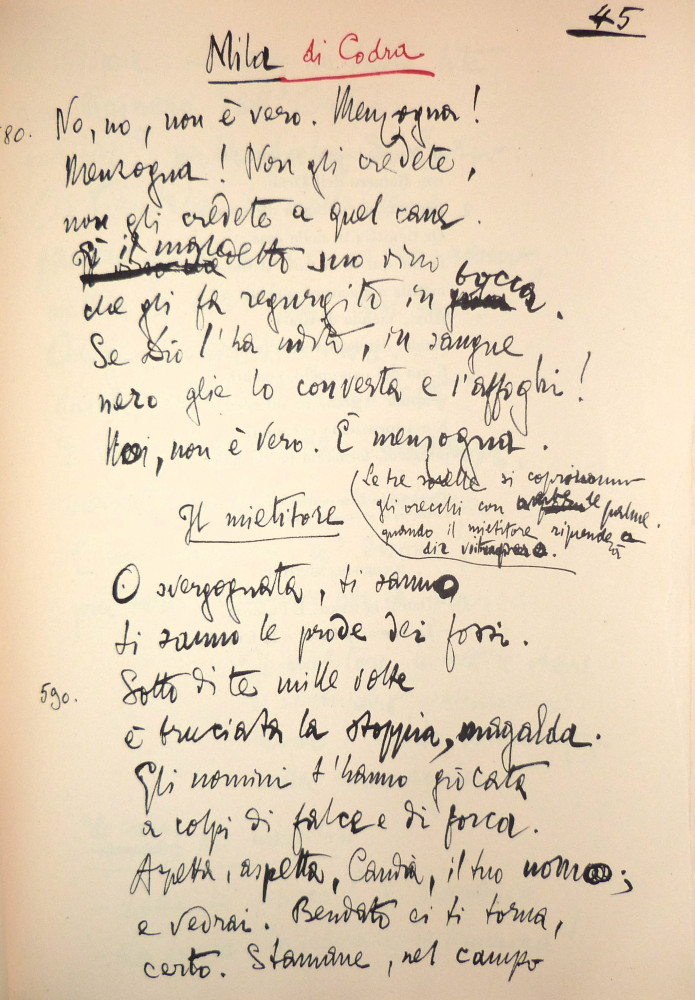 45
Mila di Codra
580. No, no, non è vero. Menzogna!
Menzogna! Non gli credete,
non gli credete a quel cane.
È il maledetto suo vino
che gli fa regurgito in bocca.
Se Dio l'ha udito, in sangue
nero glie lo converta e l'affoghi!
No, non è vero. È menzogna.
Le tre sorelle si coprironno
gli orecchi con le palme.
quando il mietitore riprenderà a
dir vitupero.
Il mietitore
O svergognata, ti sanno
ti sanno le prode dei fossi.
590. Sotto di te mille volte
è bruciata la stoppia, magalda.
Gli uomini t'hanno giocata
a colpi di falce e di forca.
Aspetta, aspetta, Candia, il tuo uomo;
e vedrai. Bendato ei ti torna,
certo. Stamane, nel campo